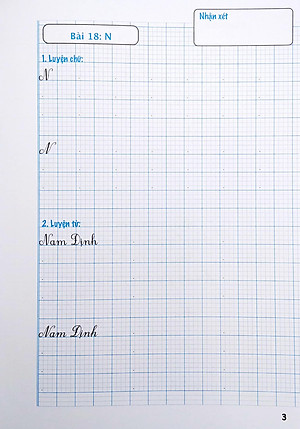 Bài 18: N
Nhận xét
1. Luyện chữ:
N
N
2. Luyện từ:
Nam Định
Nam Định
3